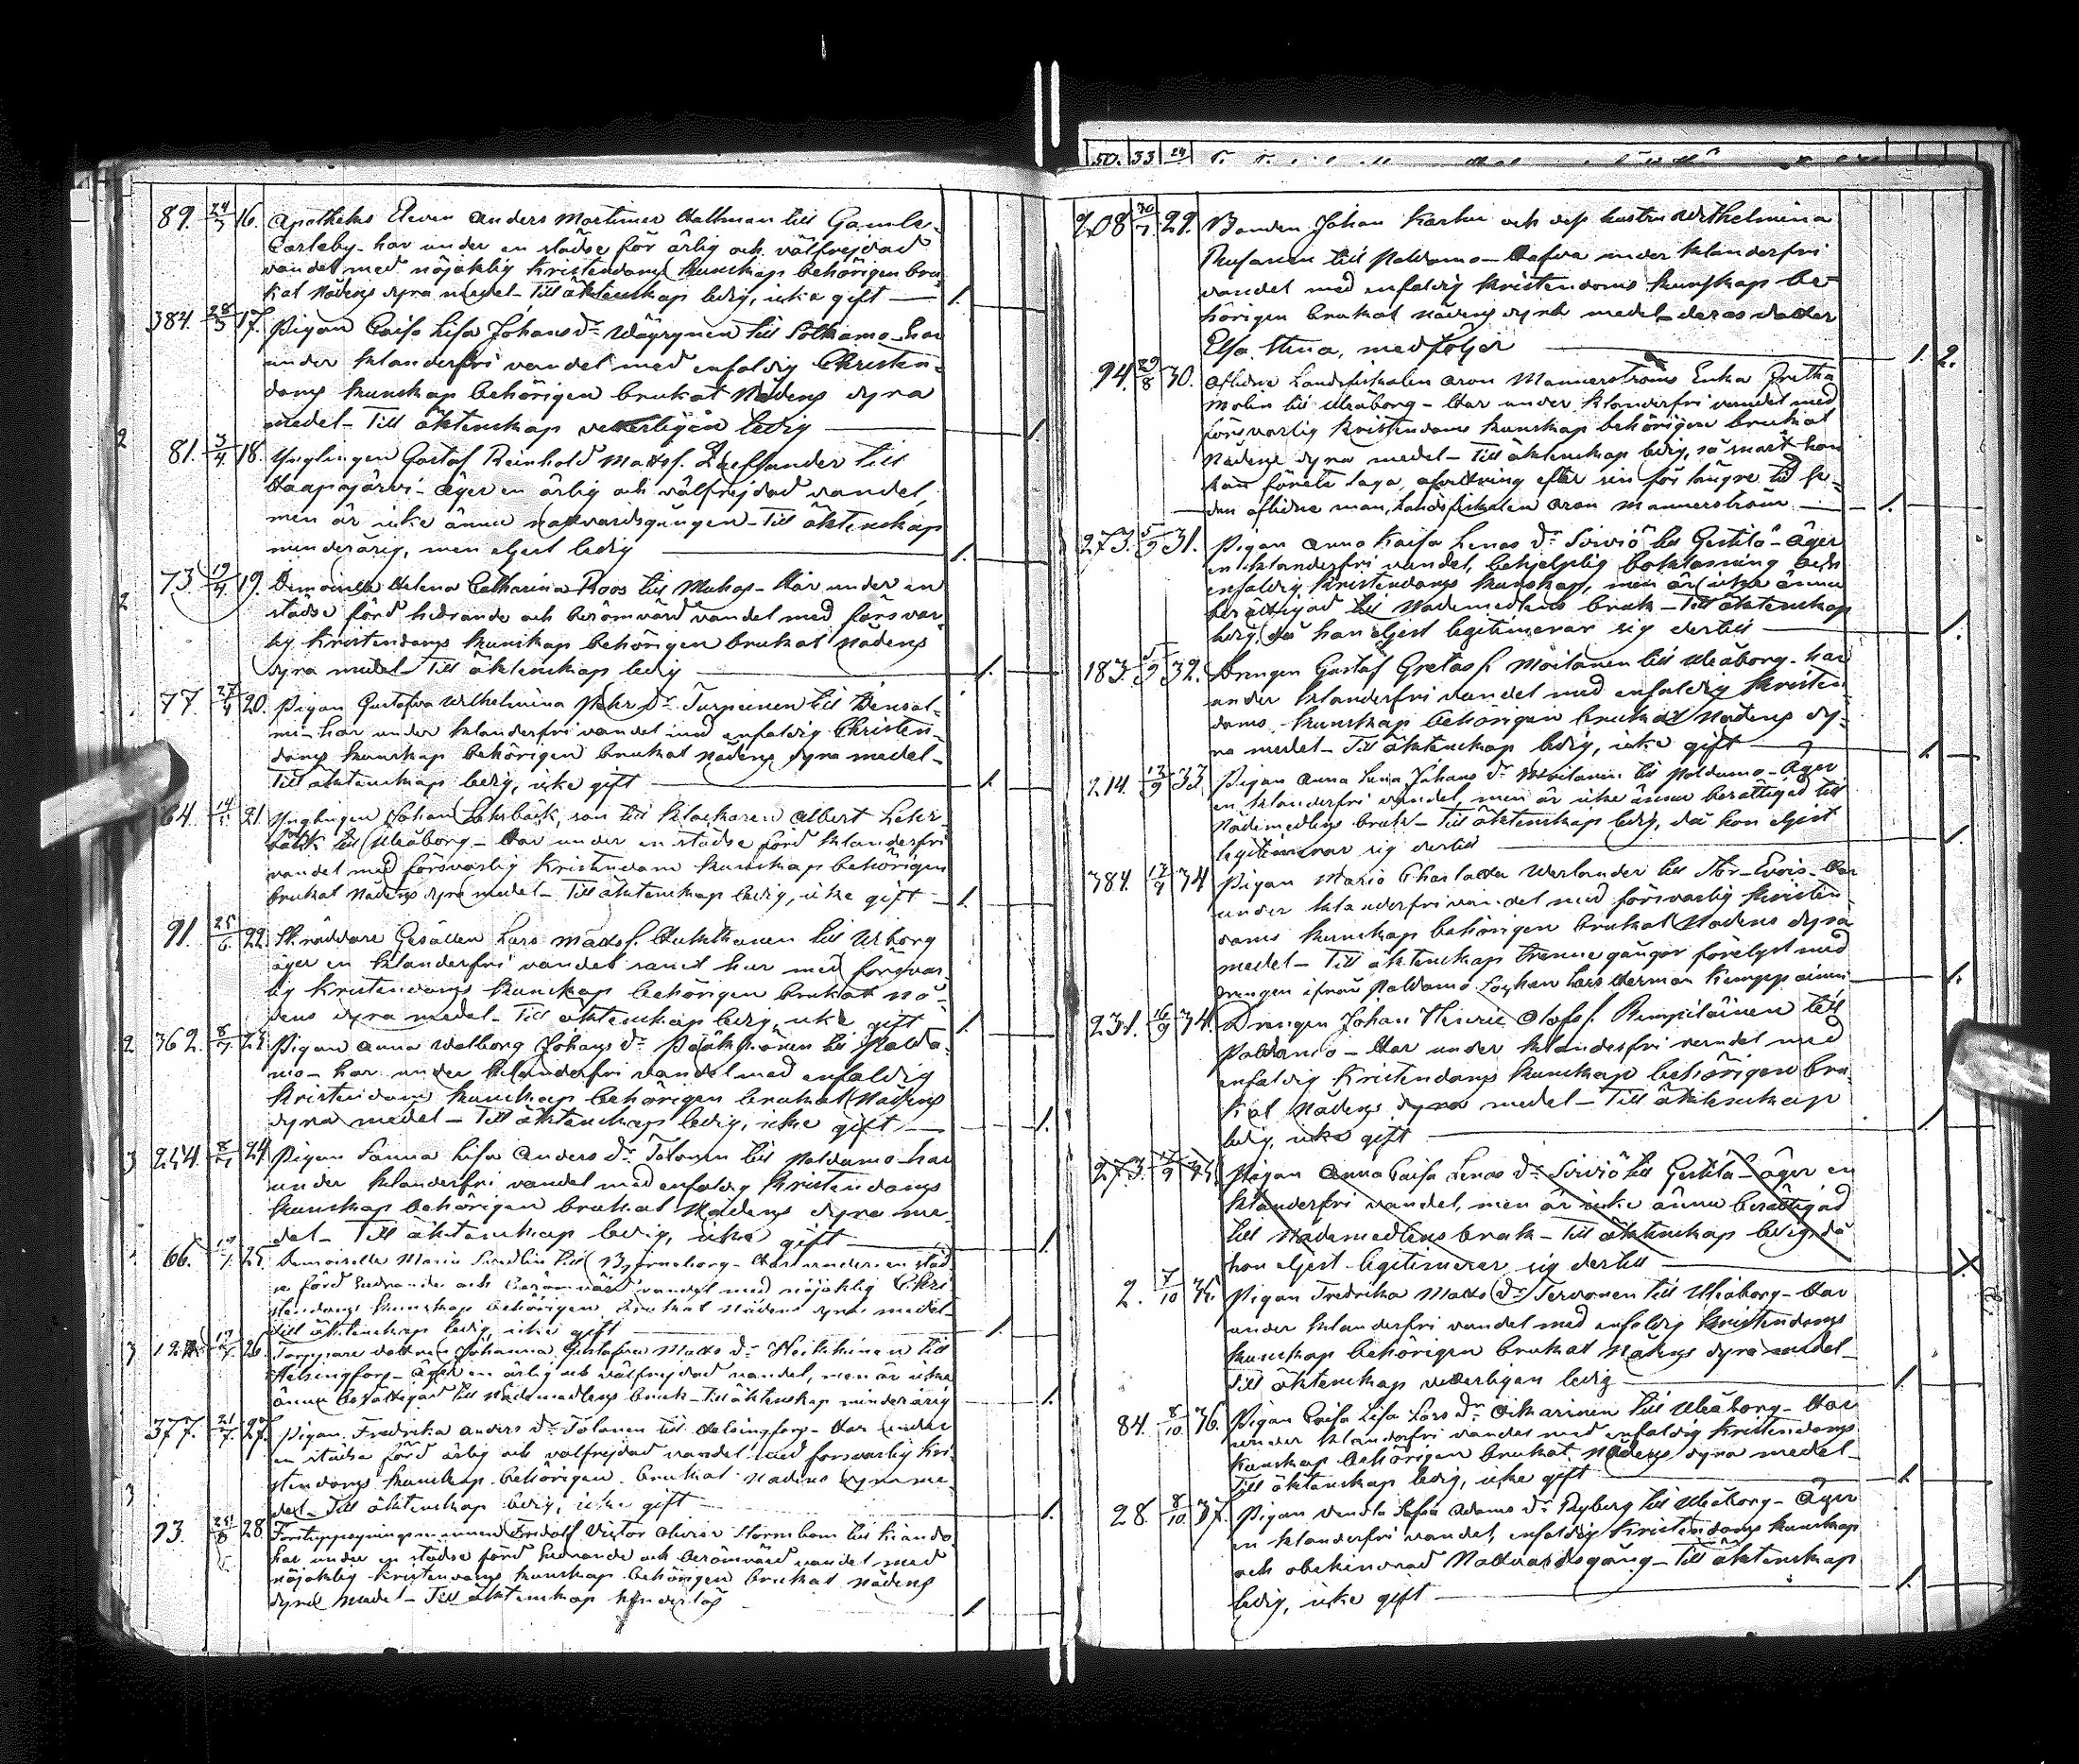 89. 24/3 16. Apotheks Eleven Anders Mortimer Hallman till Gamle-
Carleby - har under en städse för ärlig och välfrejdad
vandel med nöjaktig Kristendoms kunskap behörigen bru-
kat Nådens dyra medel - Till äktenskap ledig, icke gift — 1.
384. 28/3 17. Pigan Caisa Lisa Johans dr Wäyrynen till Sotkamo - har
under klanderfri vandel med enfaldig Christen-
doms kunskap behörigen brukat Nådens dyra
medel - Till äktenskap veterligen ledig — 1.
2 81. 3/4 18. Ynglingen Gustaf Reinhold Matts s. till
Haapajärvi - äger en ärlig och välfrejdad vandel,
men är icke ännu nattvardsgången - Till äktenskap
minderårig, men eljest ledig — 1.
2 73. 19/4 19. Demoiselle Helena Catharina Roos till Muhos - Har under en
städse förd hedrande och berömvärd vandel med försvar-
lig Kristendoms kunskap behörigen brukat Nådens
dyra medel - Till äktenskap ledig — 1.
77. 27/4 20. Pigan Gustafva Wilhelmina Pehrs dr Turpeinen till
- har under klanderfri vandel med enfaldig Christen-
doms kunskap behörigen brukat Nådens dyra medel -
Till äktenskap ledig, icke gift — 1.
64. 21. Ynglingen Johan Lehrbäck, son till Klockaren Albert Lehr-
bäck till Uleåborg - Har under en städse förd klanderfri
vandel med försvarlig Kristendoms kunskap behörigen
brukat Nådens dyra medel - Till äktenskap ledig, icke gift — 1.
91. 25/6 22. Skräddare Gesällen Lars Matts s. till Wiborg
äger en klanderfri vandel samt har med försvar-
lig Kristendoms kunskap behörigen brukat Nå-
dens dyra medel - Till äktenskap ledig, icke gift — 1.
2 362. 8/7 23. Pigan Anna Walborg Johans dr Pääkkönen till Palda-
mo - har under klanderfri vandel med enfaldig
Kristendoms kunskap behörigen brukat Nådens
dyra medel - Till äktenskap ledig, icke gift — 1.
3 254. 8/7 24. Pigan Sanna Lisa Anders dr Tolonen till Paldamo - har
under klanderfri vandel med enfaldig Kristendoms
kunskap behörigen brukat Nådens dyra me-
del - Till äktenskap ledig, icke gift — 1.
66. 25. Demoiselle Maria Sundlin till Björneborg - Har under en städ-
se förd hedrande och berömvärd vandel med nöjaktig Chri-
stendoms kunskap behörigen brukat Nådens dyra medel -
till äktenskap ledig, icke gift — 1.
3 26. Torppare dottren Johanna Gustafva Matts dr Heikkinen till
Helsingfors - Äger en ärlig och välfrejdad vandel, men är icke
ännu berättigad till Nådemedlens bruk - Till äktenskap minderårig 1.
377. 21/7 27. Pigan Fredrika Anders dr Tolonen till Helsingfors - Har under
en städse förd ärlig och välfrejdad vandel med försvarlig Kri-
stendoms kunskap behörigen brukat Nådens dyra me-
3 del - Till äktenskap ledig, icke gift — 1.
93. 28. Fridolf Victor Olivier Stormbom till Kiando
har under en städse förd hedrande och berömvärd vandel med
nöjaktig Kristendoms kunskap behörigen brukat Nådens
dyra medel - Till äktenskap hinderlös 1.
50. 33
208 30/7 29. Bonden Johan Karhu och dess hustru Wilhelmina
till Paldamo - Hafva under klanderfri
vandel med enfaldig Kristendoms kunskap be-
hörigen brukat Nådens dyra medel - deras dotter
Elsa Stina, medföljer — 1. 2.
94. 29/8 30. Aflidne Landsfiskalen Aron Mannerströms Enka Gretha
Molin till Uleåborg - Har under klanderfri vandel med
försvarlig Kristendoms kunskap behörigen brukat
Nådens dyra medel - Till äktenskap ledig, så snart hon
kan förete laga afvittring efter sin för längre tid se-
dan aflidne man, Landsfiskalen Aron Mannerström — 1.
273. 5/9 31. Pigan Anna Kaisa Lenas dr Sirviö till Gestilä - Äger
en klanderfri vandel, behjelplig bokläsning och
enfaldig Kristendoms kunskap, men är icke ännu
berättigad till Nådemedlens bruk - Till äktenskap
ledig, då hon eljest legitimerar sig dertill — 1.
183. 5/9 32. Drengen Gustaf Gretas s. Moilanen till Uleåborg - har
under klanderfri vandel med enfaldig Kristen-
doms kunskap behörigen brukat Nådens dy-
ra medel - Till äktenskap ledig, icke gift — 1.
214. 13/9 33. Pigan Anna Lena Johans dr Moilanen till Paldamo - Äger
en klanderfri vandel, men är icke ännu berättigad till
Nådemedlens bruk - Till äktenskap ledig, då hon eljest
legitimerar sig dertill — 1.
384. 34 Pigan Maria Charlotta Werlander till - Har
under klanderfri vandel med försvarlig Kristen-
doms kunskap behörigen brukat Nådens dyra
medel - Till äktenskap trenne gångor förelyst med
drengen ifrån Paldamo Socken Lars Herman Kemppainen — 1.
231. 16/9 34. Drengen Johan Henric Olofs s. till
Paldamo - Har under klanderfri vandel med
enfaldig Kristendoms kunskap behörigen bru-
kat Nådens dyra medel - Till äktenskap
ledig, icke gift — 1
273. 35. Pigan Anna Caisa Lenas dr Sirviö till Gestila - äger en
klanderfri vandel, men är icke ännu berättigad
till Nådemedlens bruk - Till äktenskap ledig, då
hon eljest legitimerar sig dertill — X.
2. 7/10 35. Pigan Fredrika Matts dr Tervonen till Uleåborg - Har
under klanderfri vandel med enfaldig Kristendoms
kunskap behörigen brukat Nådens dyra medel -
Till äktenskap veterligen ledig — 1
84. 8/10 36. Pigan Caisa Lisa Lars dr Oikarinen till Uleåborg - Har
under klanderfri vandel med enfaldig Kristendoms
kunskap behörigen brukat Nådens dyra medel -
Till äktenskap ledig, icke gift — 1.
28. 8/10 37. Pigan Vendla Sofia Adams dr Ryberg till Uleåborg - Äger
en klanderfri vandel, enfaldig Kristendoms kunskap
och obehindrad Nattvardsgång - Till äktenskap
ledig, icke gift — 1.